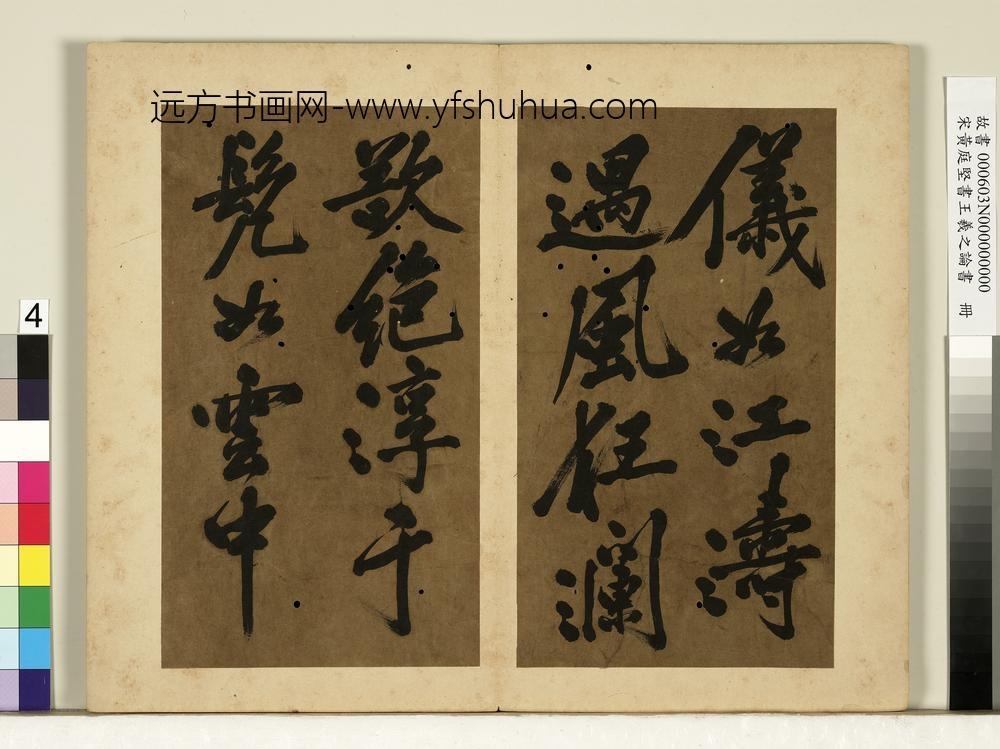 远方书画网-www.yfshuhua.com
儀如江濤
遇風狂瀾
絕淳于
髡如雲中
故書 000603N000000000
宋黃庭堅書王羲之論書 冊
4